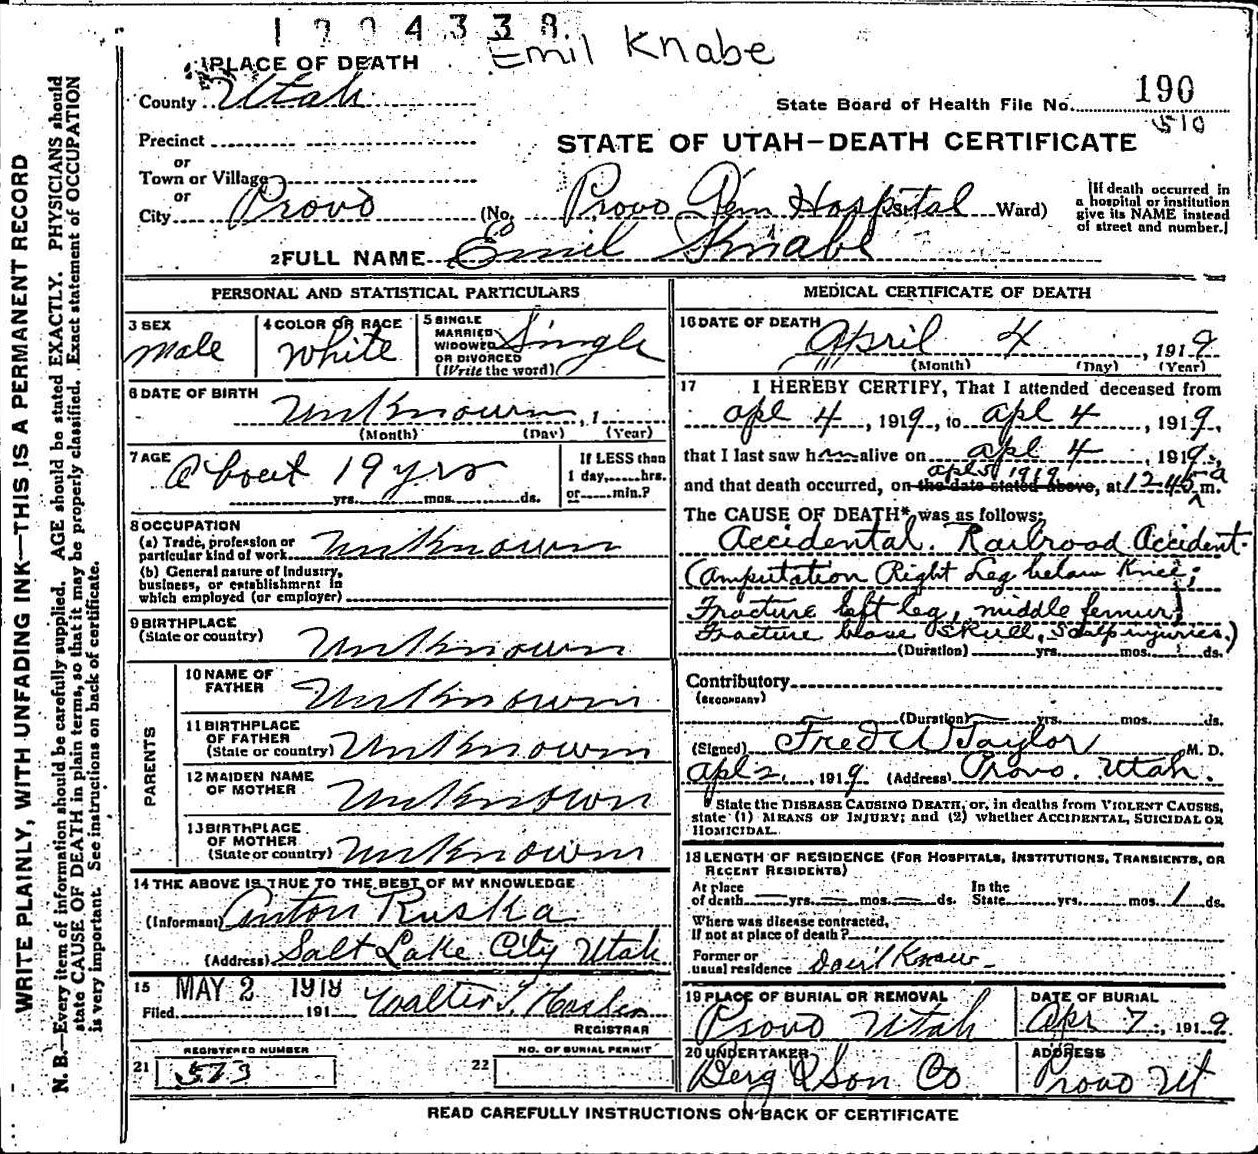 1904338.
Emil Knabe
1 PLACE OF DEATH
County Utah
State Board of Health File No. 190
510
Precinct
or
Town or Village
or
City Provo
STATE OF UTAH—DEATH CERTIFICATE
(No. Provo Gen Hospital St. Ward)
[If death occurred in
a hospital or institution
give its NAME instead
of street and number.]
2 FULL NAME Emil Knabe
PERSONAL AND STATISTICAL PARTICULARS
3 SEX
Male
4 COLOR OR RACE
White
5 SINGLE
MARRIED
WIDOWED
OR DIVORCED
(Write the word)
Single
6 DATE OF BIRTH
Unknown, 1
(Month) (Day) (Year)
7 AGE
About 19 yrs
yrs. mos. ds.
If LESS than
1 day, hrs.
or min.?
8 OCCUPATION
(a) Trade, profession or
particular kind of work Unknown
(b) General nature of industry,
business, or establishment in
which employed (or employer)
9 BIRTHPLACE
(State or country)
Unknown
PARENTS
10 NAME OF
FATHER
Unknown
11 BIRTHPLACE
OF FATHER
(State or country) Unknown
12 MAIDEN NAME
OF MOTHER
Unknown
13 BIRTHPLACE
OF MOTHER
(State or country) Unknown
14 THE ABOVE IS TRUE TO THE BEST OF MY KNOWLEDGE
(Informant) Anton Ruska
(Address) Salt Lake City Utah
15
Filed MAY 2 1919 191 Walter T.
REGISTRAR
REGISTERED NUMBER
21 573
NO. OF BURIAL PERMIT
22
MEDICAL CERTIFICATE OF DEATH
16 DATE OF DEATH
April 4, 1919
(Month) (Day) (Year)
17 I HEREBY CERTIFY, That I attended deceased from
apl 4, 1919, to apl 4, 1919,
that I last saw him alive on apl 4, 1919,
apl 5 1919
and that death occurred, on the date stated above, at 12 45 a m.
The CAUSE OF DEATH* was as follows:
Accidental. Railroad Accident.
(Amputation Right Leg below Knee;
Fracture left leg, middle femur;
Fracture base skull, scalp injuries.)
(Duration) yrs. mos. ds.
Contributory
(SECONDARY)
(Duration) yrs. mos. ds.
(Signed) Fred W Taylor M. D.
Apl 2, 1919 (Address) Provo. Utah.
* State the DISEASE CAUSING DEATH, or, in deaths from VIOLENT CAUSES,
state (1) MEANS OF INJURY; and (2) whether ACCIDENTAL, SUICIDAL OR
HOMICIDAL.
18 LENGTH OF RESIDENCE (FOR HOSPITALS, INSTITUTIONS, TRANSIENTS, OR
RECENT RESIDENTS)
At place
of death yrs. mos. ds.
In the
State yrs. mos. 1 ds.
Where was disease contracted,
If not at place of death?
Former or
usual residence Don't Know
19 PLACE OF BURIAL OR REMOVAL
Provo Utah
DATE OF BURIAL
Apr 7, 1919
20 UNDERTAKER
Berg & Son Co
ADDRESS
Provo Ut
READ CAREFULLY INSTRUCTIONS ON BACK OF CERTIFICATE
WRITE PLAINLY, WITH UNFADING INK—THIS IS A PERMANENT RECORD
N. B.—Every item of information should be carefully supplied. AGE should be stated EXACTLY. PHYSICIANS should
state CAUSE OF DEATH in plain terms, so that it may be properly classified. Exact statement of OCCUPATION
is very important. See instructions on back of certificate.